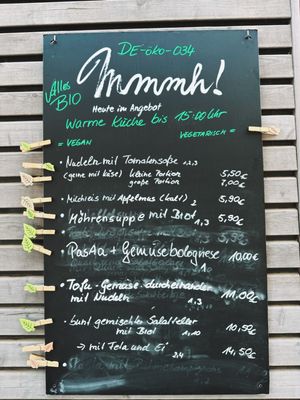 DE-öko-034
Alles
BIO
Mmmh!
Heute im Angebot
Warme Küche bis 15:00 Uhr
= VEGAN
VEGETARISCH =
• Nudeln mit Tomatensoße 1,2,3
(gerne mit Käse) kleine Portion 5,50€
große Portion 7,00€
• Milchreis mit Apfelmus (kalt) 2 5,90€
• Möhrensuppe mit Brot 1,3 5,90€
5,90€
Pasta + Gemüsebolognese 10,00€
1
• Tofu-Gemüse-durcheinander
mit Nudeln 1,3 11,00€
• bunt gemischter Salatteller
mit Brot 1,10 10,50€
→ mit Feta und Ei 14,50€
2,4